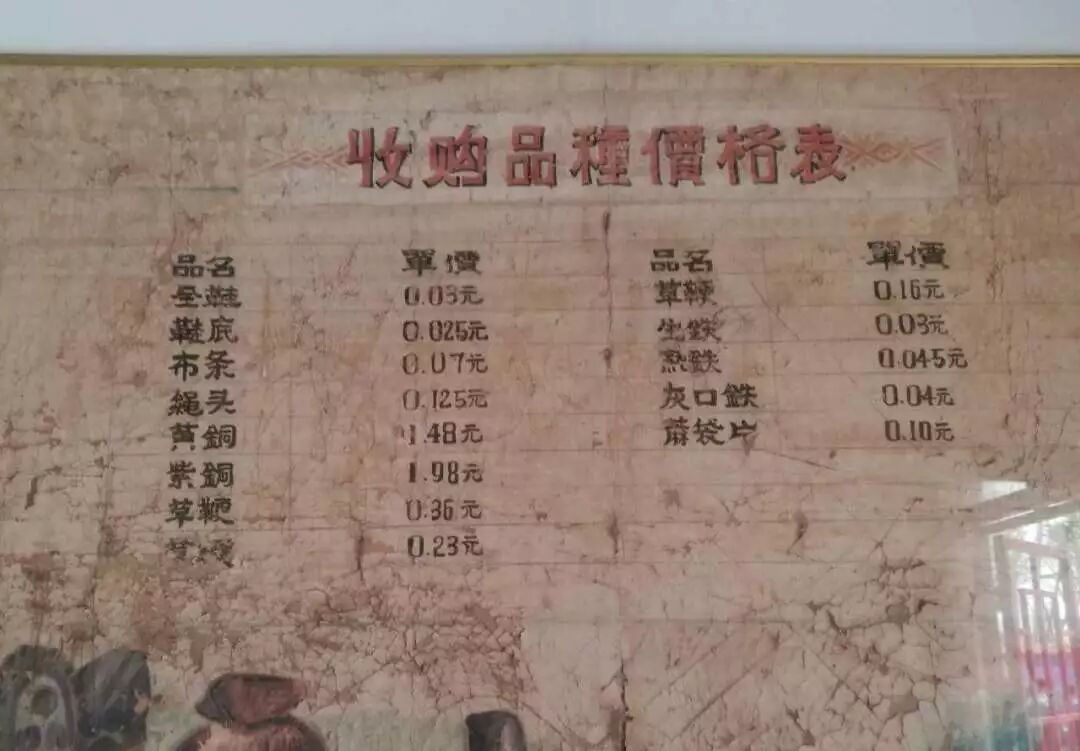 收购品種價格表
品名 單價
全鞋 0.03元
鞋底 0.025元
布条 0.07元
繩头 0.125元
黄銅 1.48元
紫銅 1.98元
草鞭 0.36元
0.23元
品名 單價
草鞭 0.16元
生鉄 0.03元
熟鉄 0.045元
灰口鉄 0.04元
蔴袋片 0.10元